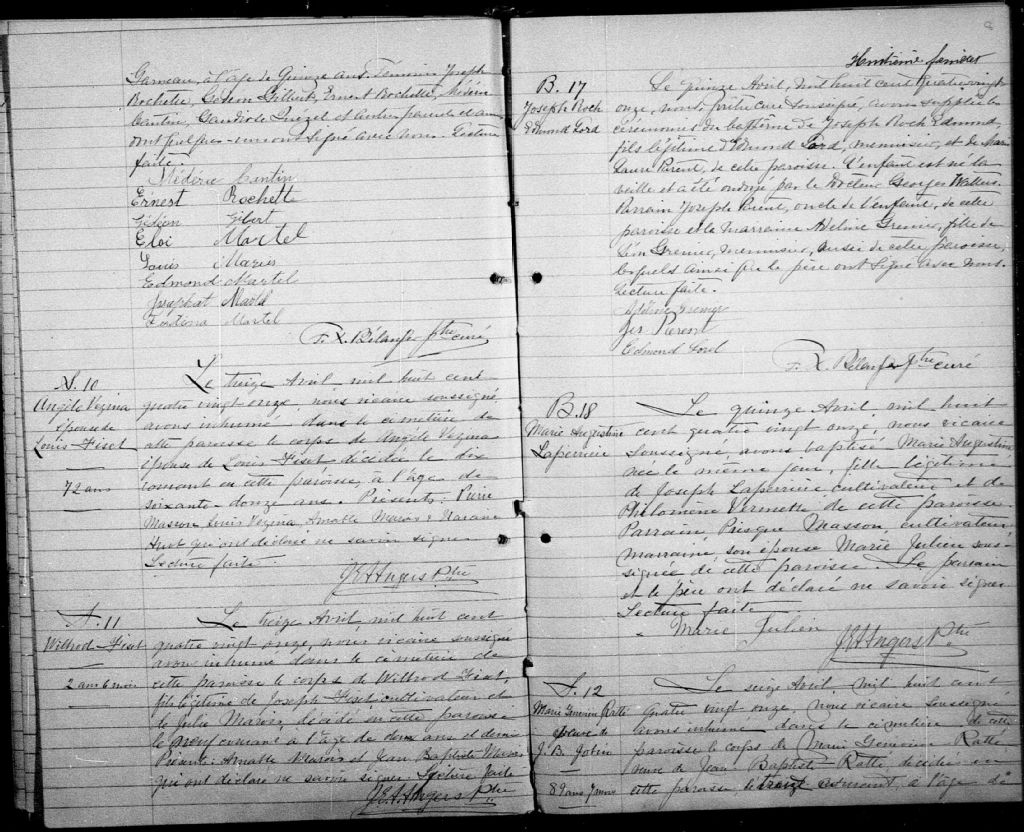 Garneau, à l'âge de Témoins Joseph
Rochette, Gédéon Gilbert, Ernest Rochette, Médéric
Cantin,
signé avec nous. Lecture
faite.
Médéric Cantin
Ernest Rochett
Gédéon Gilbert
Eloi Martel
Louis
Edmond Martel
Josaphat Martel
Martel
F. X. Bélanger Ptre curé
S. 10
Angèle Vezina
épouse de
Louis Fiset
72 ans
Le treize Avril mil huit cent
quatre vingt onze, nous vicaire soussigné
avons inhumé dans le cimetière de
cette paroisse le corps de Angèle Vezina
épouse de Louis Fiset décédée le dix
courant en cette paroisse, à l'âge de
soixante-douze ans. Présents: Pierre
Masson, Louis Vezina, Amable Marois &
Huot qui ont déclaré ne savoir signer
Lecture faite.
J.E.A. Angers Ptre
S. 11
Wilbrod Fiset
2 ans 6 mois
Le treize Avril mil huit cent
quatre vingt onze, nous vicaire soussigné
avons inhumé dans le cimetière de
cette paroisse le corps de Wilbrod Fiset,
fils légitime de Joseph Fiset cultivateur et
de Julie Marois, décédé en cette paroisse
le courant à l'âge de deux ans et demi
Présents: Amable Marois et Jean Baptiste Marois
qui ont déclaré ne savoir signer. Lecture faite
J.E.A. Angers Ptre
Huitième feuillet
B. 17
Joseph Roch
Edmond Lord
Le quinze Avril, mil huit cent quatre vingt
onze, nous, prêtre curé soussigné, avons suppléé les
cérémonies du baptême de Joseph Roch Edmond,
fils légitime d'Edmond Lord, menuisier, et de Marie
Laure Parent, de cette paroisse. L'enfant est né la
veille et a été ondoyé par le Docteur Georges Watters.
Parrain Joseph Parent, oncle de l'enfant, de cette
paroisse et la marraine Adeline Grenier, fille de
Léon Grenier, menuisier, aussi de cette paroisse,
lesquels ainsi que le père ont signé avec nous.
Lecture faite.
Adeline Grenier
Jos. Parent
Edmond Lord
F. X. Bélanger Ptre curé
B. 18
Marie Augustine
Laperrière
Le quinze Avril, mil huit
cent quatre vingt onze, nous vicaire
soussigné, avons baptisé Marie Augustine
née le même jour, fille légitime
de Joseph Laperrière cultivateur et de
Philomène Vermette de cette paroisse
Parrain, Presque Masson, cultivateur
marraine, son épouse Marie Julien sous-
signée de cette paroisse. Le parrain
et le père ont déclaré ne savoir signer
Lecture faite
Marie Julien
J.E.A. Angers Ptre
S. 12
Marie Genevieve Ratté
épouse de
J. B. Jobin
89 ans 7 mois
Le seize Avril, mil huit cent
quatre vingt onze, nous vicaire soussigné
avons inhumé dans le cimetière de cette
paroisse le corps de Marie Genevieve Ratté
veuve de Jean Baptiste Ratté décédée en
cette paroisse, le treize courant, à l'âge de